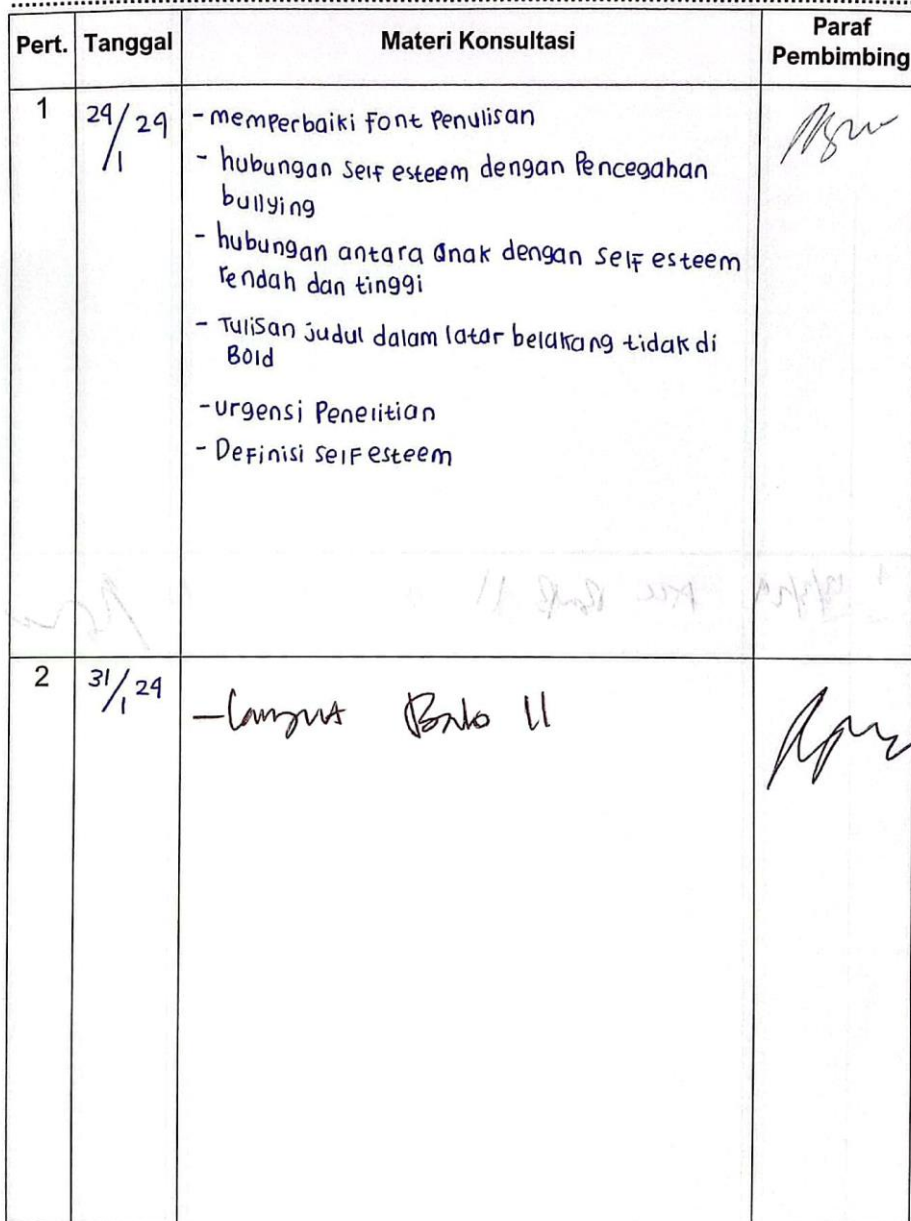 Pert. Tanggal Materi Konsultasi Paraf
Pembimbing
1 29/1 29 - memperbaiki font Penulisan
- hubungan self esteem dengan Pencegahan
bullying
- hubungan antara anak dengan self esteem
rendah dan tinggi
- Tulisan judul dalam latar belakang tidak di
Bold
- urgensi Penelitian
- Definisi self esteem
2 31/1 29 - Lanjut Bab II